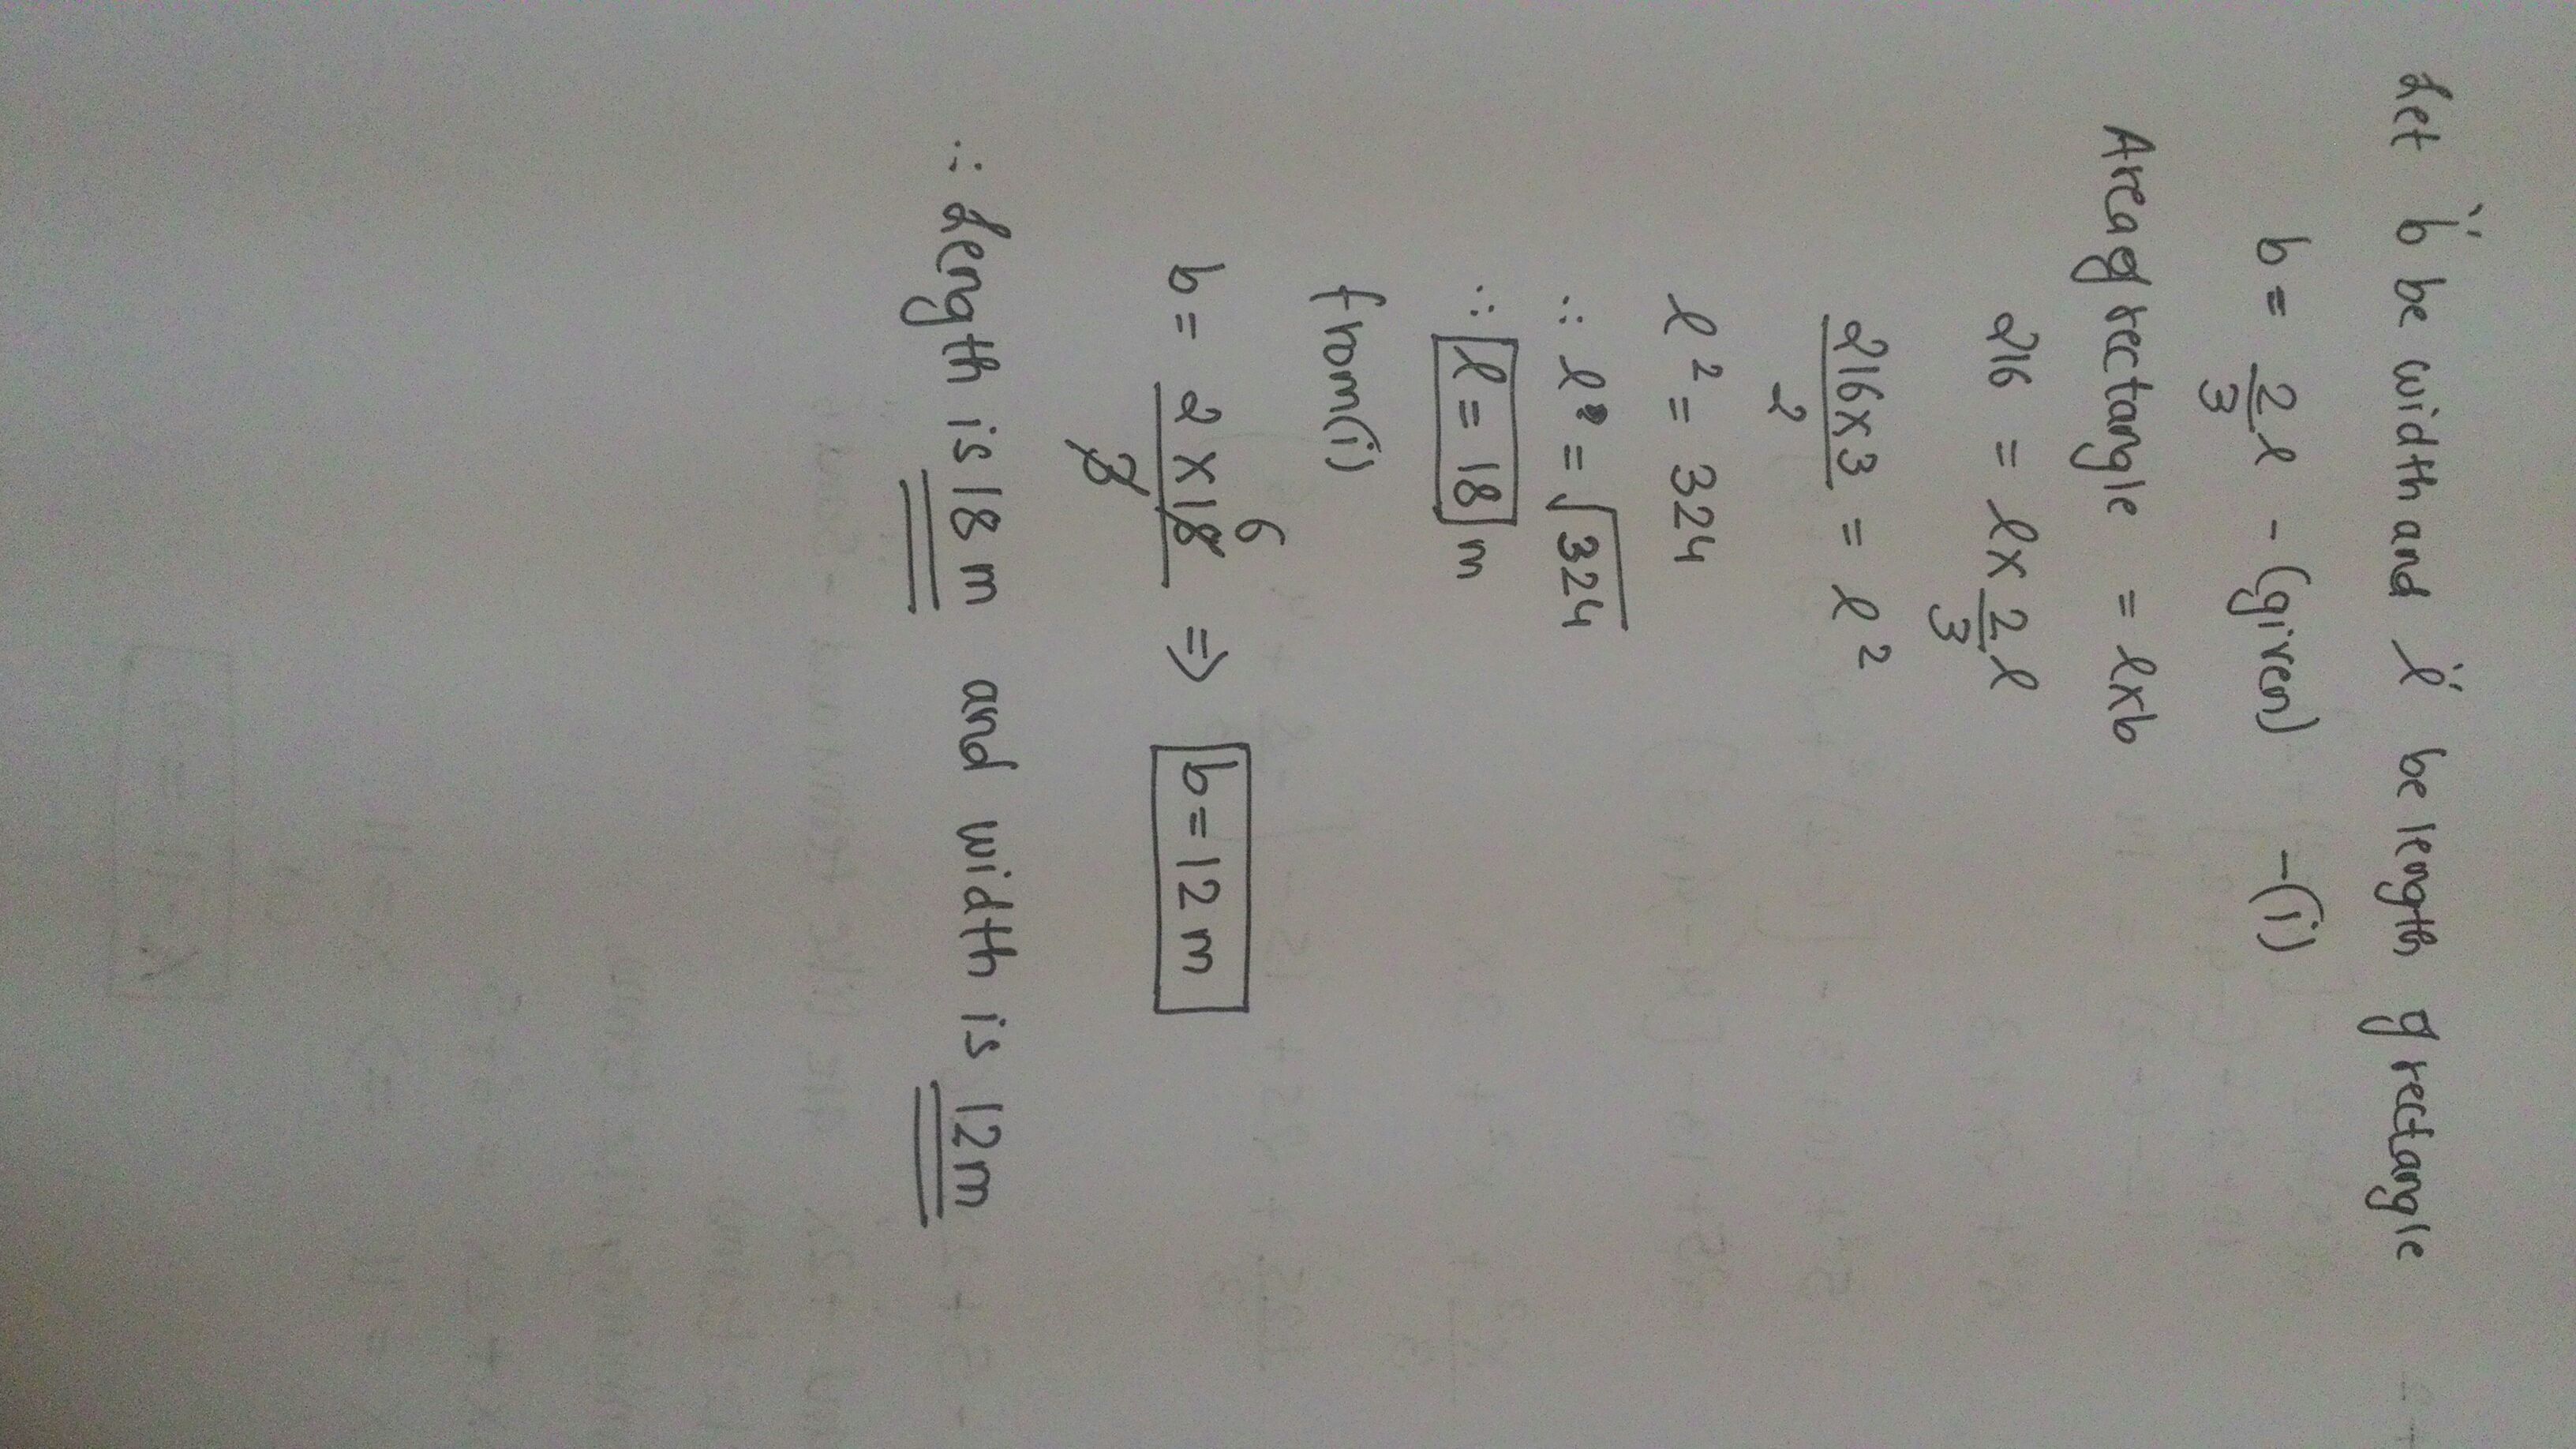 Let 'b' be width and 'l' be length of rectangle
b = 2/3 l - (given) - (i)
Area of rectangle = l×b
216 = l × 2/3 l
216×3/2 = l²
l² = 324
∴ l = √324
∴ l = 18 m
from (i)
b = 2×18/3 6 ⇒ b = 12 m
∴ Length is 18 m and width is 12m